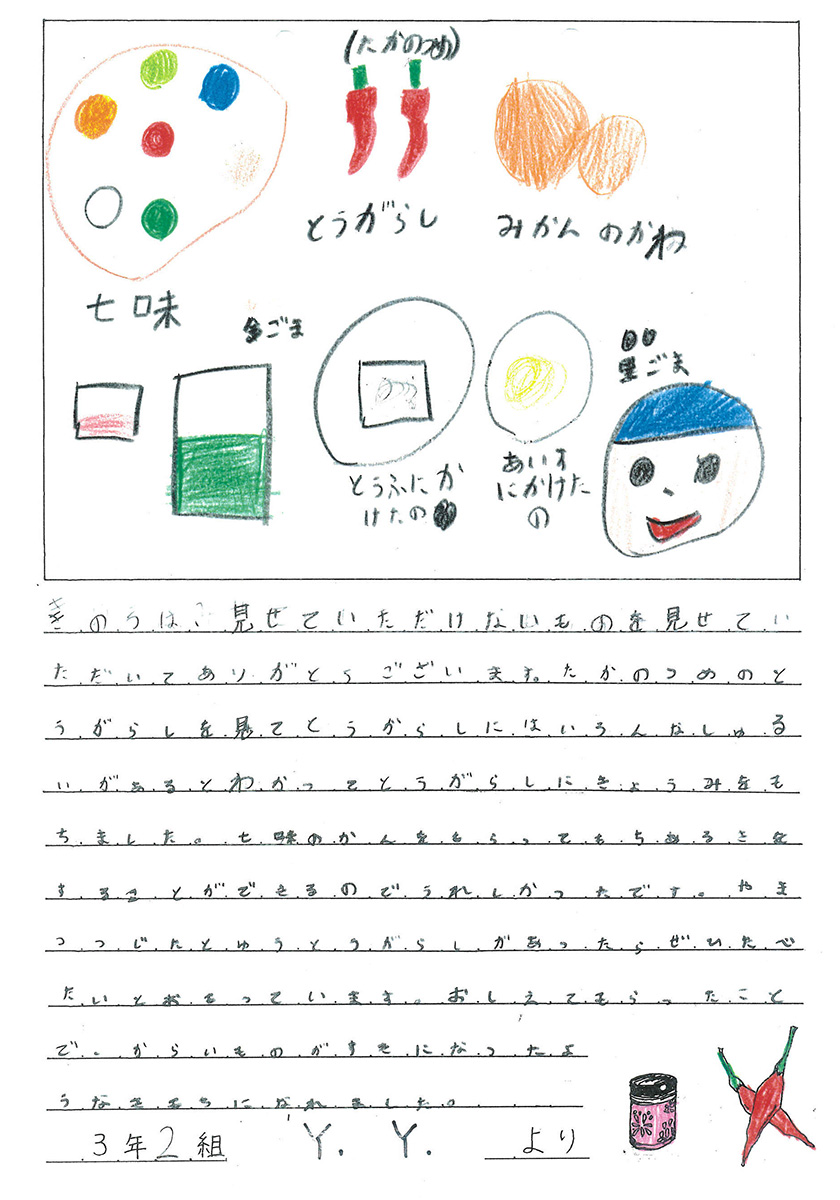 (たかのつめ)
とうがらし
みかんのかわ
七味
金ごま
黒ごま
とうふにか
けたの
あいす
にかけた
の
きのうはご見せていただけないものを見せてい
ただいてありがとうございます。たかのつめのと
うがらしを見てとうがらしにはいろんなしゅる
いがあるとわかってとうがらしにきょうみをも
ちました。七味のかんをもらってもちあるきを
することができるのでうれしかったです。やま
つつじたとゆうとうがらしがあったらぜひたべ
たいとおもっています。おしえてもらったこと
で、からいものがすきになったよ
うなきもちになれました。
3年2組 Y. Y. より